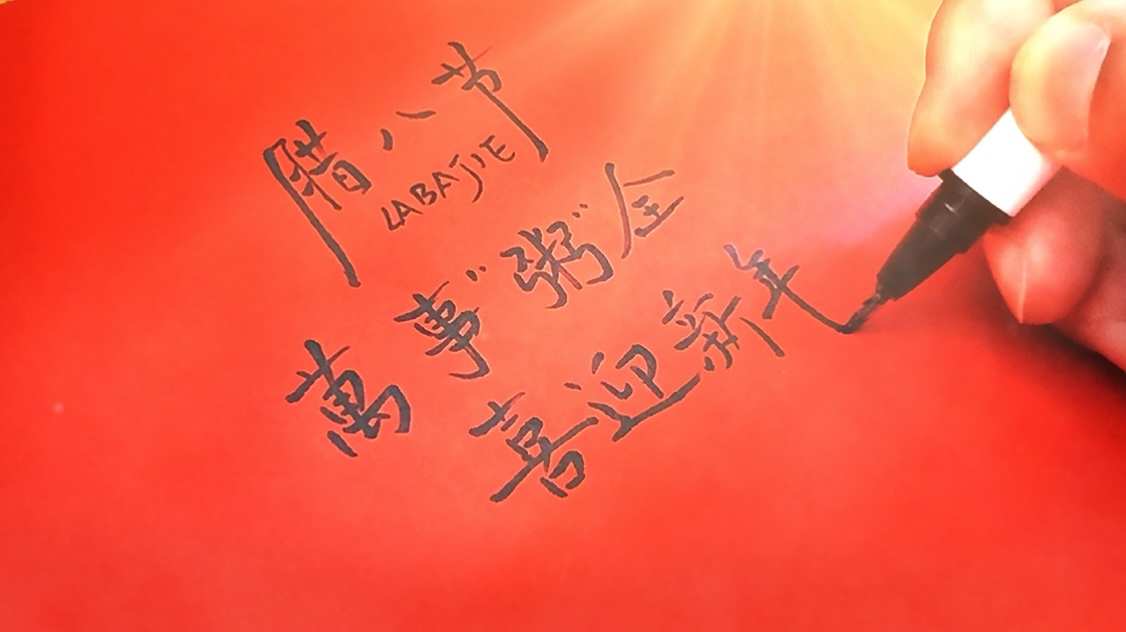 腊八节
LABAJIE
萬事"粥"全
喜迎新年